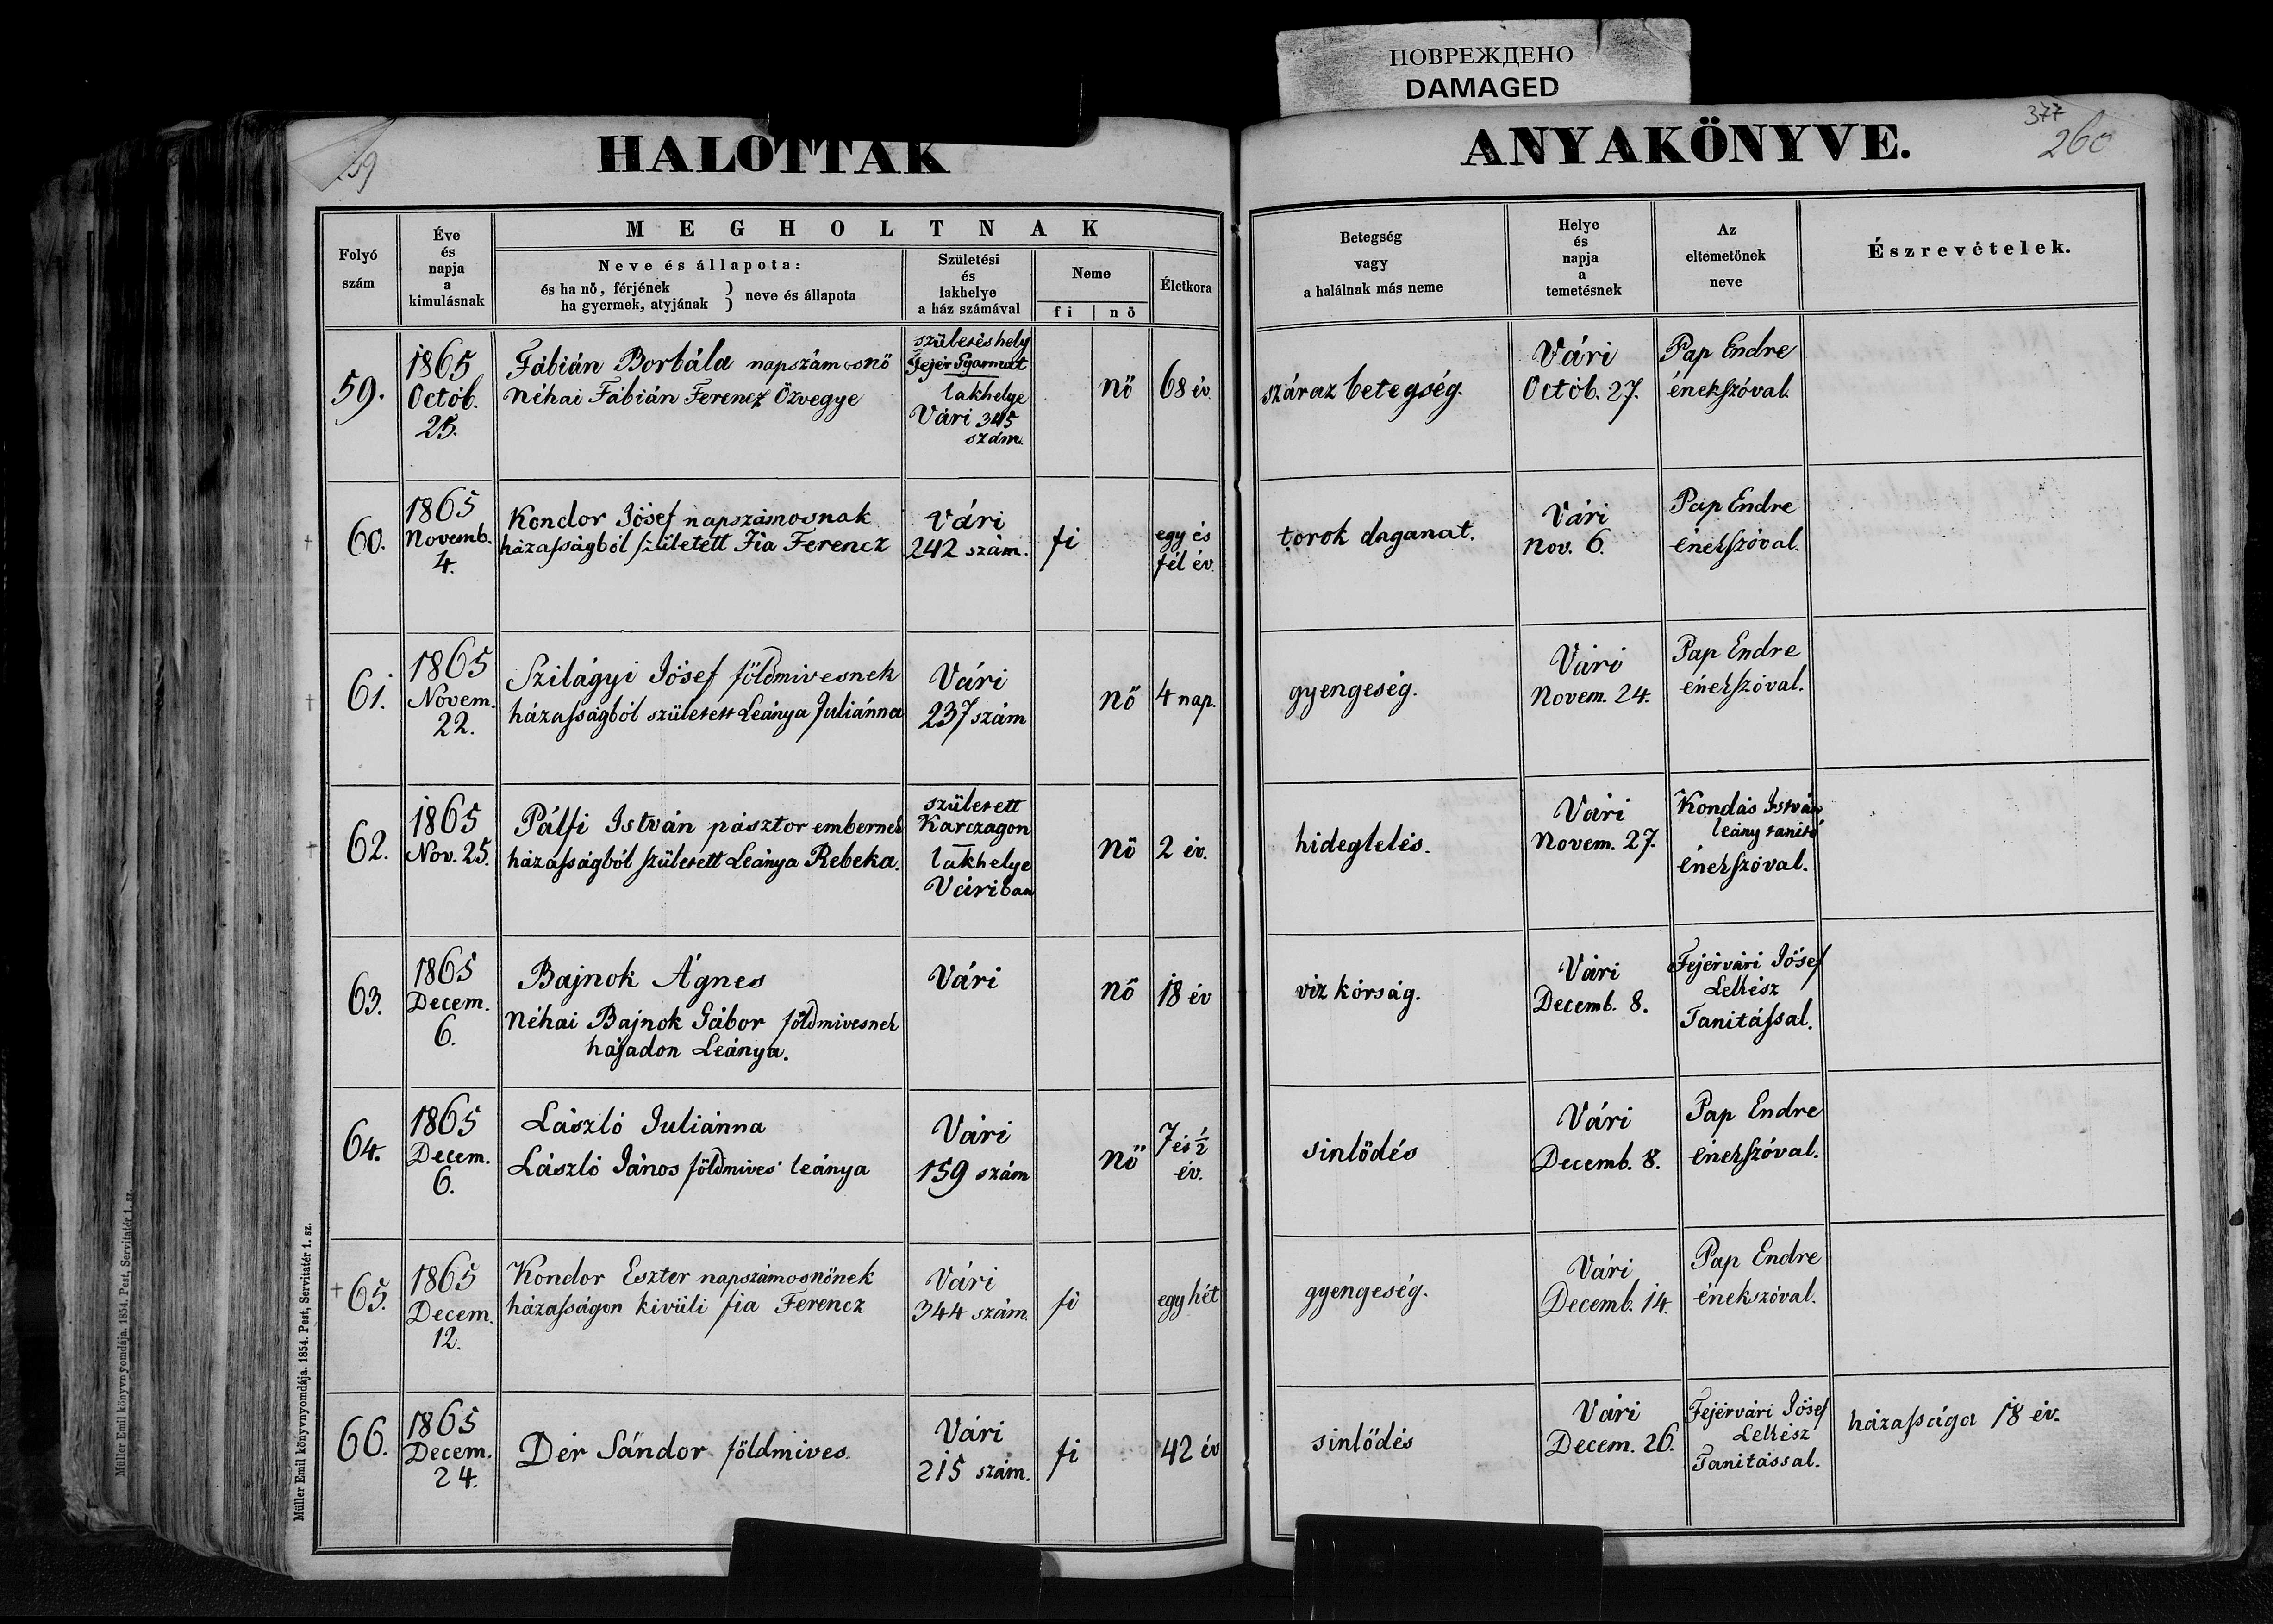 ПОВРЕЖДЕНО
DAMAGED
377
260
HALOTTAK
ANYAKÖNYVE.
Folyó
szám
Éve
és
napja
a
kimulásnak
MEGHOLTNAK
Neve és állapota:
és ha nö, férjének
ha gyermek, atyjának } neve és állapota
Születési
és
lakhelye
a ház számával
Neme
fi
nö
Életkora
Betegség
vagy
a halálnak más neme
Helye
és
napja
a
temetésnek
Az
eltemetönek
neve
Észrevételek.
59.
1865
Octob.
25.
Fábián Borbála napszámosnő
Néhai Fábián Ferencz Özvegye
születéshely
Fejér Gyarmat
lakhelye
Vári 345
szám.
nő
68 év.
száraz betegség.
Vári
Octob. 27.
Pap Endre
énekſzóval.
60.
1865
Novemb.
4.
Kondor Jósef napszámosnak
házaſságból ſzületett Fia Ferencz
Vári
242 szám.
fi
egy és
fél év.
torok daganat.
Vári
Nov. 6.
Pap Endre
énekſzóval.
61.
1865
Novem.
22.
Szilágyi Jósef földmivesnek
házaſságból született Leánya Juliánna
Vári
237 szám
nő
4 nap.
gyengeség.
Vári
Novem. 24.
Pap Endre
énekſzóval.
62.
1865
Nov. 25.
Pálfi István pásztor embernek
házaſságból ſzületett Leánya Rebeka.
született
Karczagon
lakhelye
Váriban
nő
2 év.
hideglelés.
Vári
Novem. 27.
Kondás István
leány tanító
énekſzóval.
63.
1865
Decem.
6.
Bajnok Ágnes
Néhai Bajnok Gábor földmivesnek
hajadon Leánya.
Vári
nő
18 év
viz kórság.
Vári
Decemb. 8.
Fejérvári Jósef
Lelkész
Tanitáſsal.
64.
1865
Decem.
6.
László Juliánna
László János földmives leánya
Vári
159 szám
nő
7 és 1/2
év.
sinlődés
Vári
Decemb. 8.
Pap Endre
énekſzóval.
65.
1865
Decem.
12.
Kondor Eszter napszámosnőnek
házaſságon kivüli fia Ferencz
Vári
344 szám.
fi
egy hét
gyengeség.
Vári
Decemb. 14.
Pap Endre
énekszóval.
66.
1865
Decem.
24.
Dér Sándor földmives.
Vári
215 szám.
fi
42 év
sinlődés
Vári
Decem. 26.
Fejérvári Jósef
Lelkész
Tanitással.
házaſsága 18 év.
Müller Emil könyvnyomdája. 1854. Pest, Servitatér 1. sz.
Müller Emil könyvnyomdája. 1854. Pest, Servitatér 1. sz.